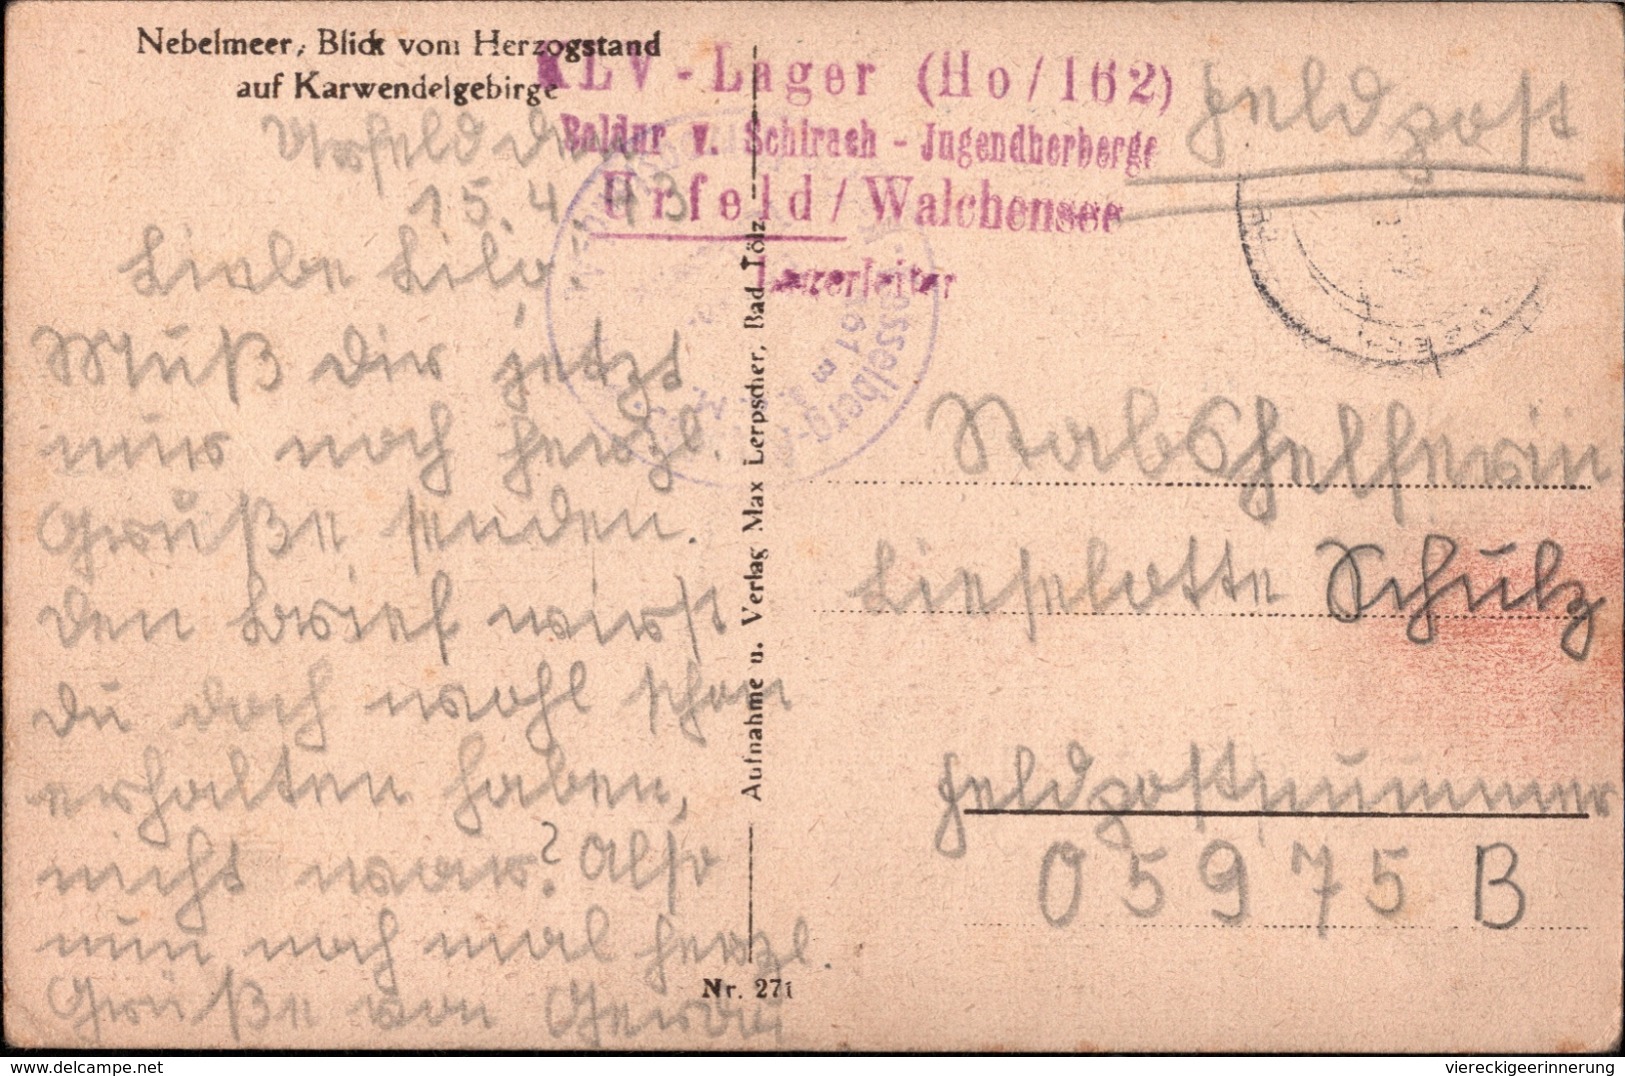 Nebelmeer, Blick vom Herzogstand
auf Karwendelgebirge
KLV-Lager (Ho/162)
Baldur v. Schirach-Jugendherberge
Urfeld / Walchensee
Lagerleiter
Feldpost
Urfeld den
15.4.43
Liebe Lilo!
Muß dir jetzt
nur noch herzl.
Grüße senden.
den Brief wirst
du doch wohl schon
erhalten haben,
nicht war? Also
nun noch mal herzl.
Grüße von
Aufnahme u. Verlag Max Lerpscher, Bad Tölz
Nr. 271
Kesselberg-
861 m
Stabshelferin
Lieselotte Schulz
Feldpostnummer
05975 B
delcampe.net
viereckigeerinnerung